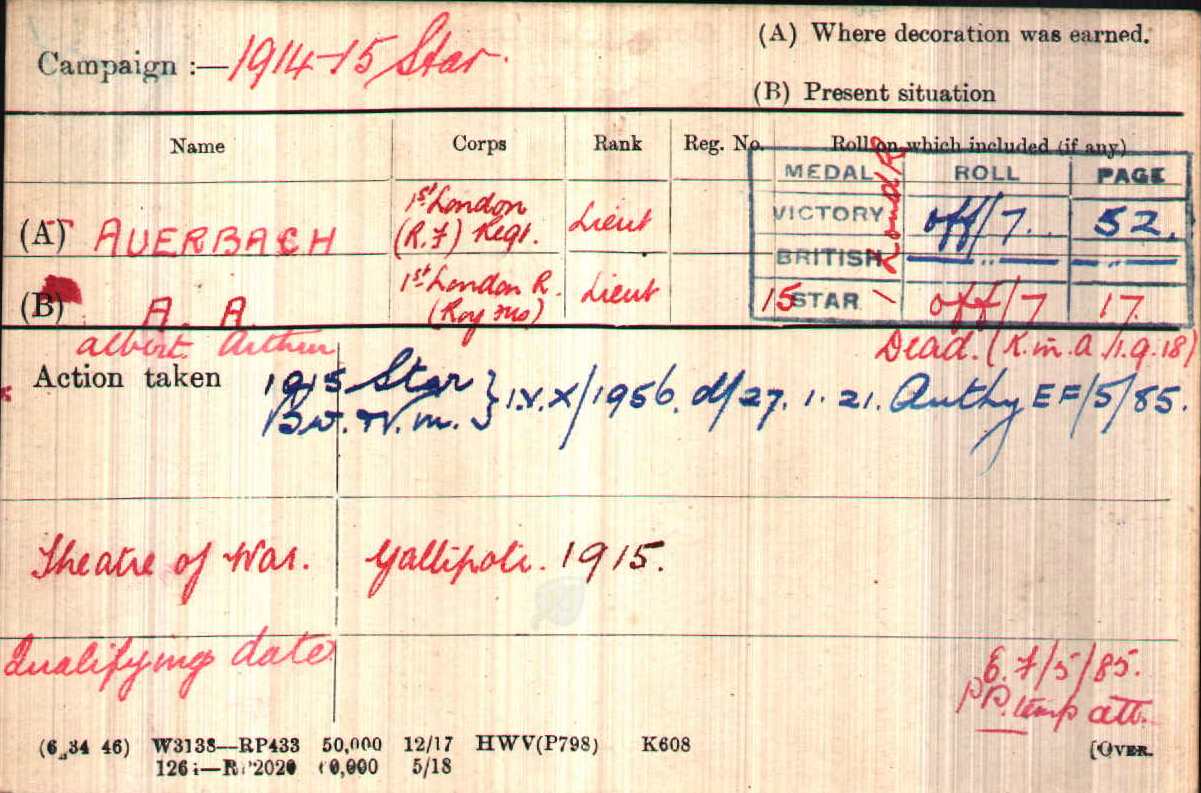 Campaign :— 1914-15 Star.
(A) Where decoration was earned.
(B) Present situation
Name Corps Rank Reg. No. Roll on which included (if any)
MEDAL ROLL PAGE
(A) AUERBACH 1st London (R.F) Regt. Lieut
VICTORY off/7. 52.
BRITISH — „ — — „ —
(B) A. A. 1st London R. Lieut
15 STAR off/7 17.
Albert Arthur
Dead. (K. in. a 1.9.18)
Action taken 1915 Star } I.V.X/1956. d/27.1.21. Authy EF/5/85.
B.W.V.m.
Theatre of War. Gallipoli. 1915.
Qualifying date
E.F/5/85.
temp att.
(6 34 46) W3138—RP433 50,000 12/17 HWV(P798) K608
5/18
[OVER.